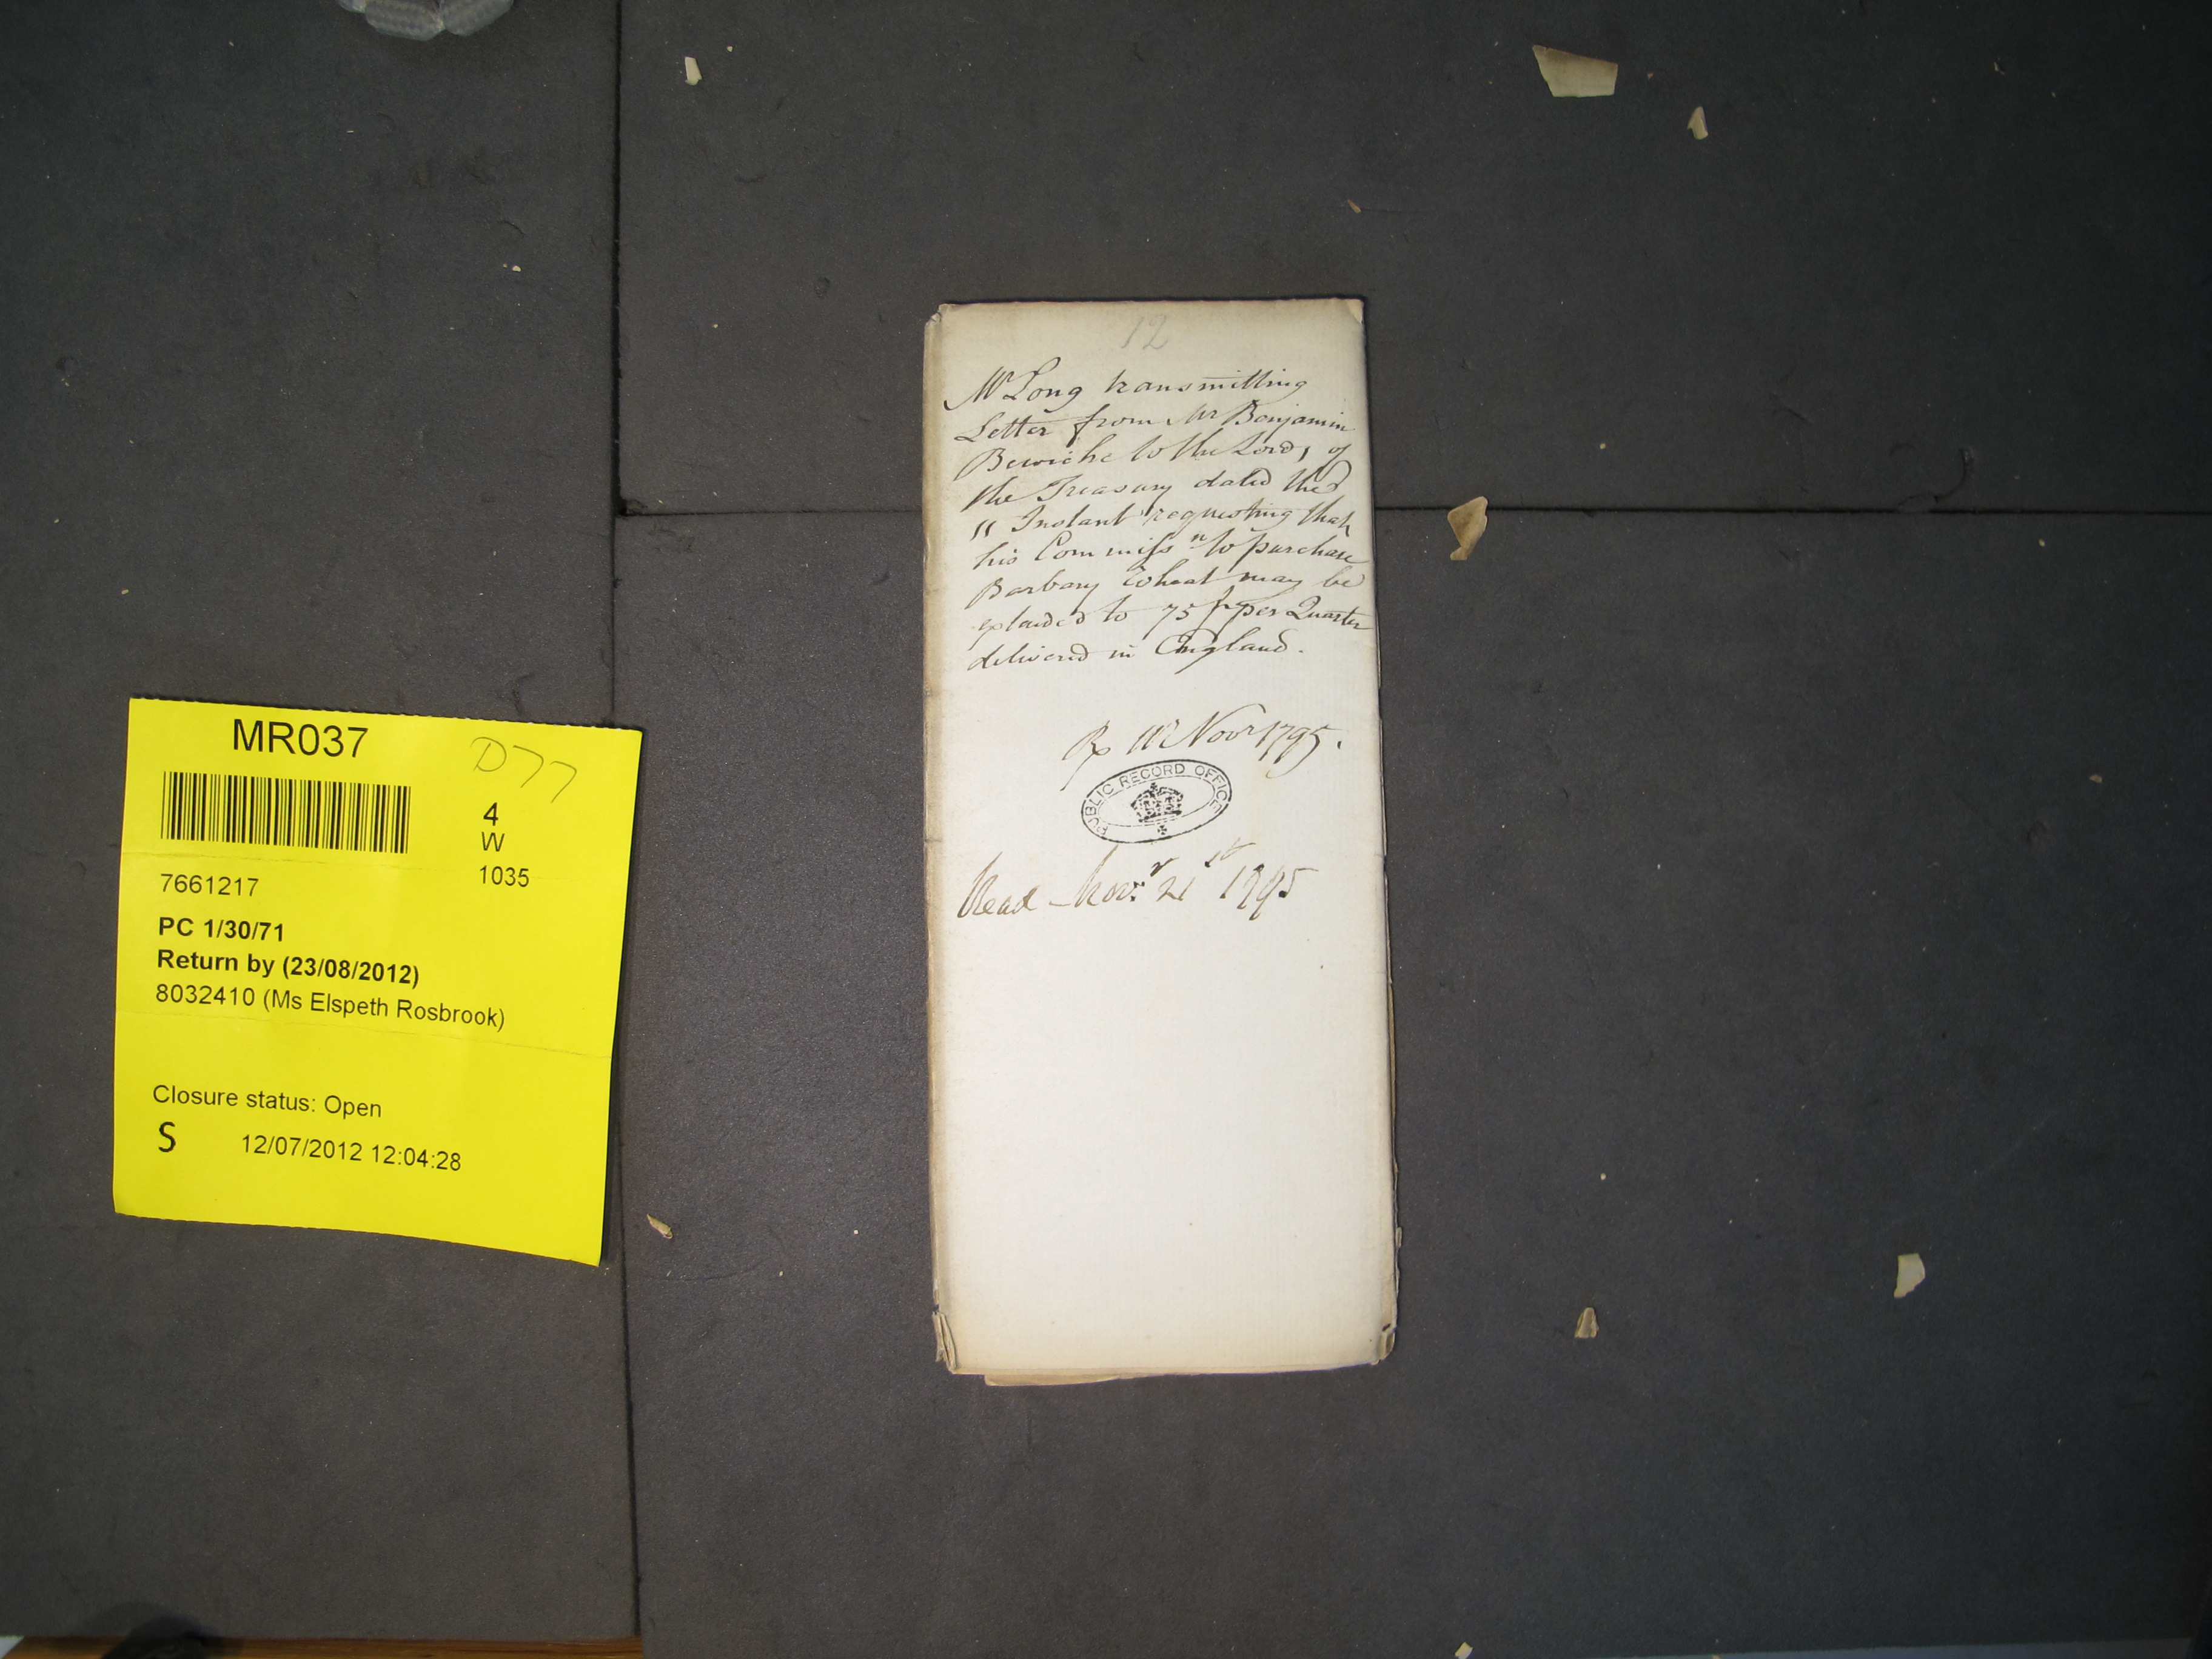 12
Mr Long transmitting
Letter from Mr Benjamin
Bewicke to the Lords of
the Treasury dated the
11 Instant requesting that
his Commissn to purchase
Barbary Wheat may be
extended to 75 s/ per Quarter
delivered in England.
Rx 11 Novr 1795.
PUBLIC RECORD OFFICE
Read – Novr. 21st 1795
MR037
D77
4
W
1035
7661217
PC 1/30/71
Return by (23/08/2012)
8032410 (Ms Elspeth Rosbrook)
Closure status: Open
S 12/07/2012 12:04:28